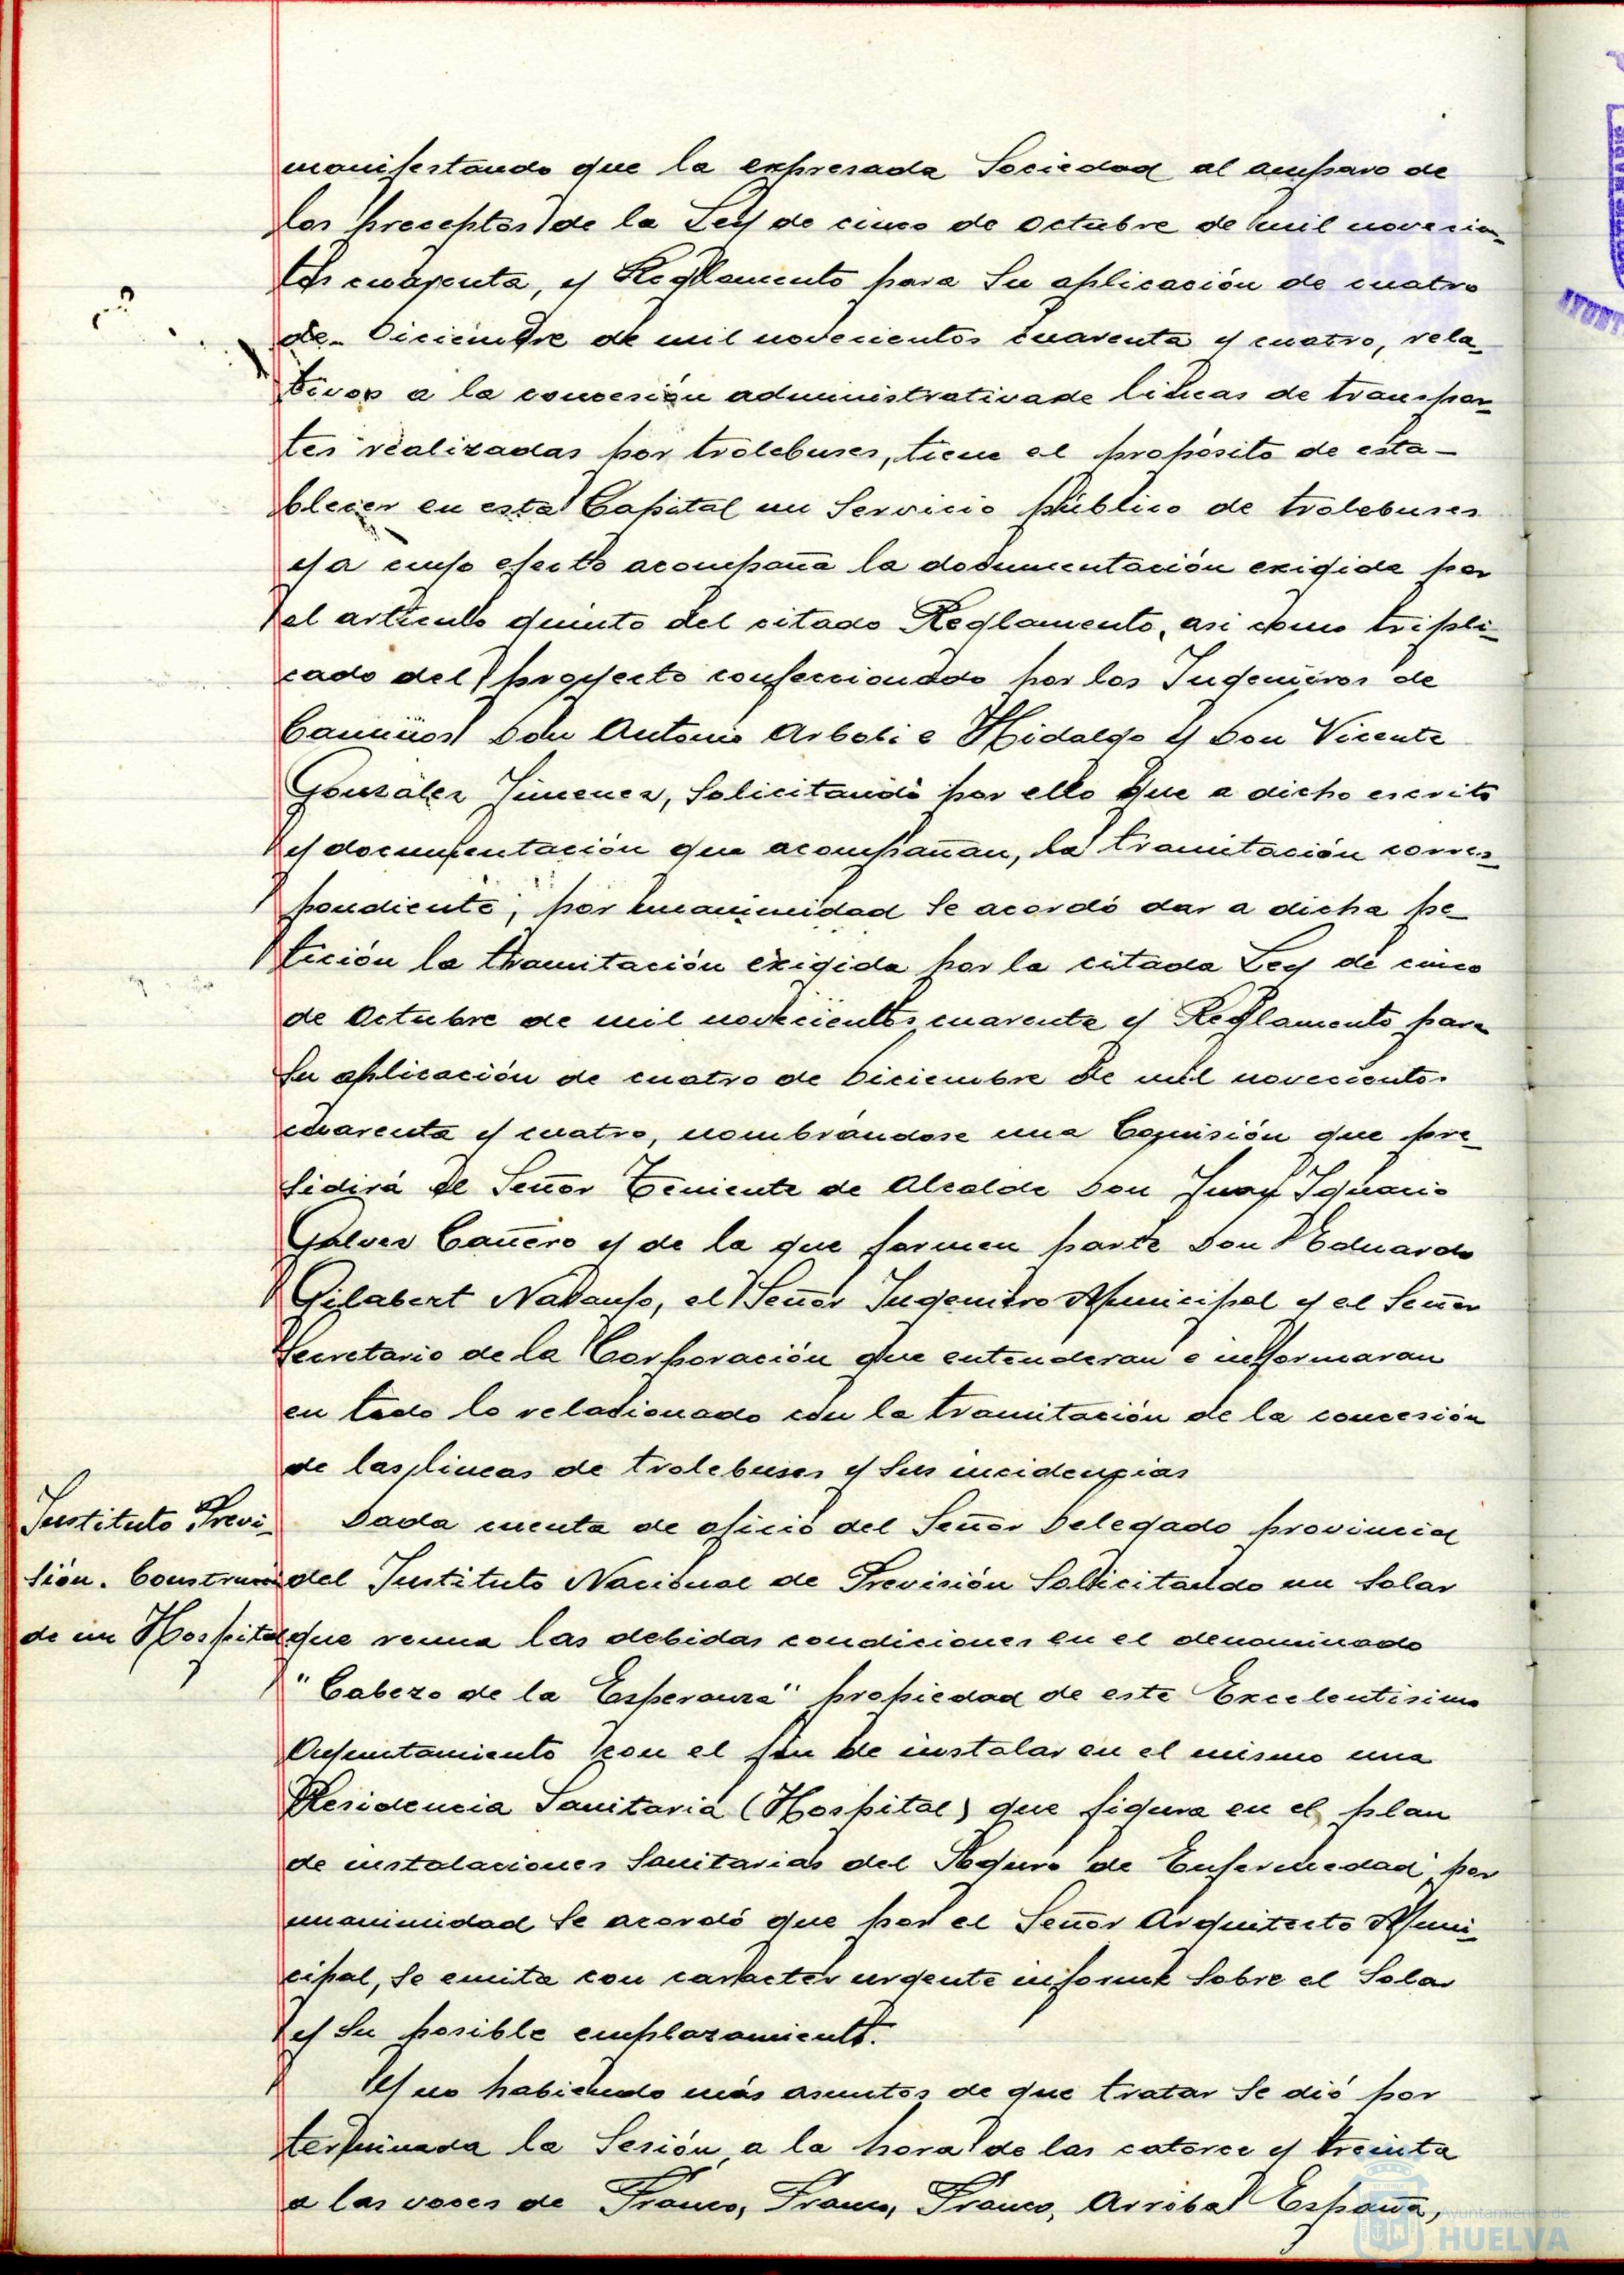 manifestando que la expresada Sociedad al amparo de
los preceptos de la Ley de cinco de Octubre de mil novecien-
tos cuarenta, y Reglamento para su aplicación de cuatro
de Diciembre de mil novecientos cuarenta y cuatro, rela-
tivos a la concesión administrativa de lineas de transpor-
tes realizadas por trolebuses, tiene el propósito de esta-
blecer en esta Capital un Servicio público de trolebuses
y a cuyo efecto acompaña la documentación exigida por
el artículo quinto del citado Reglamento, asi como tripli-
cado del proyecto confeccionado por los Ingenieros de
Caminos Don Antonio Arboli e Hidalgo y Don Vicente
González Jimenez, Solicitando por ello que a dicho escrito
y documentación que acompañan, la tramitación corres-
pondiente; por unanimidad se acordó dar a dicha pe-
tición la tramitación exigida por la citada Ley de cinco
de Octubre de mil novecientos cuarenta y Reglamento para
su aplicación de cuatro de Diciembre de mil novecientos
cuarenta y cuatro, nombrándose una Comisión que pre-
sidirá el Señor Teniente de Alcalde Don Juan Ignacio
Galvez Cañero y de la que formen parte Don Eduardo
Gilabert, el Señor Ingeniero Municipal y el Señor
Secretario de la Corporación que entenderan e informaran
en todo lo relacionado con la tramitación de la concesión
de las lineas de trolebuses y sus incidencias
Instituto Previ-
sión. Construcción
de un Hospital
Dada cuenta de oficio del Señor Delegado provincial
del Instituto Nacional de Previsión Solicitando un Solar
que reuna las debidas condiciones en el denominado
"Cabezo de la Esperanza" propiedad de este Excelentisimo
Ayuntamiento con el fin de instalar en el mismo una
Residencia Sanitaria (Hospital) que figura en el plan
de instalaciones Sanitarias del Seguro de Enfermedad por
unanimidad se acordó que por el Señor Arquitecto Muni-
cipal, se emita con caracter urgente informe sobre el Solar
y su posible emplazamiento.
Y no habiendo más asuntos de que tratar se dió por
terminada la Sesión a la hora de las catorce y treinta
a las voces de Franco, Franco, Franco, Arriba España,
Ayuntamiento de
HUELVA